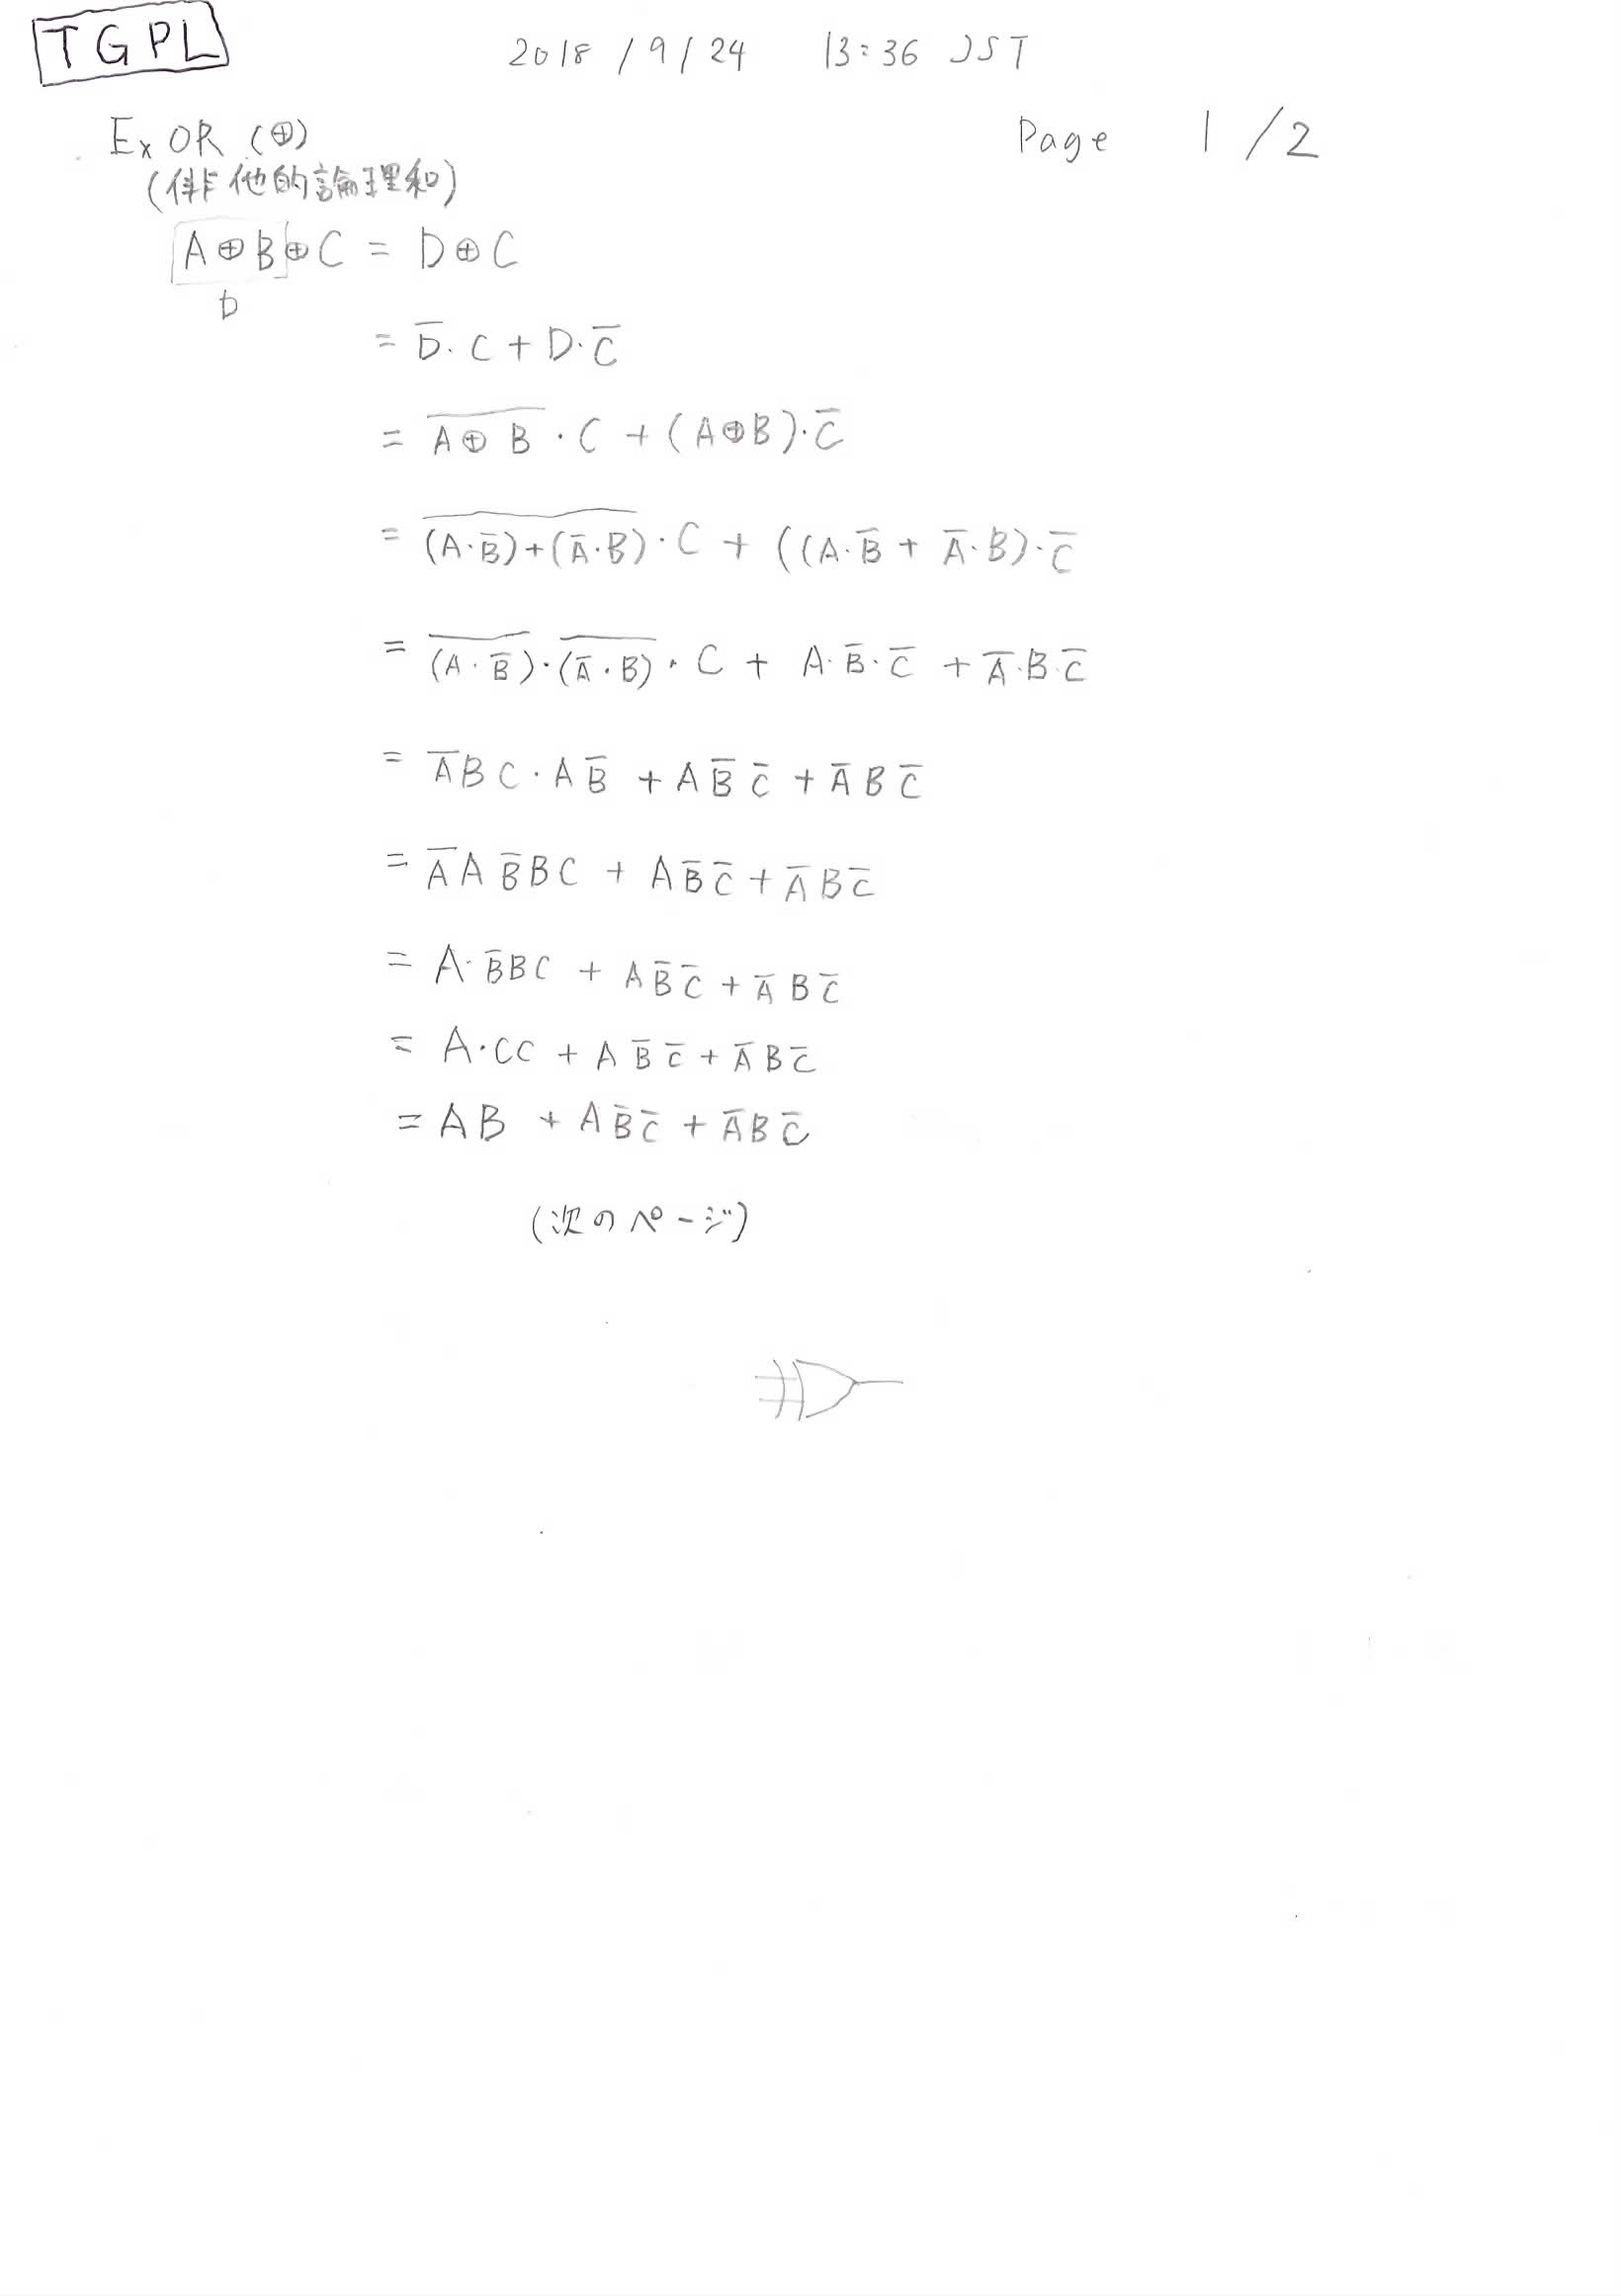 TGPL
2018/9/24 13:36 JST
ExOR (⊕)
Page 1/2
(排他的論理和)
A⊕B⊕C = D⊕C
D
= D̅·C + D·C̅
= A̅⊕̅B̅·C + (A⊕B)·C̅
= (̅A̅·̅B̿)̅+̅(̅A̿·̅B̅)̅·C + ((A·B̅ + A̅·B)·C̅
= (̅A̅·̅B̿)̅·(̅A̿·̅B̅)̅·C + A·B̅·C̅ + A̅·B·C̅
= A̅BC·AB̅ + AB̅C̅ + A̅BC̅
= A̅AB̅BC + AB̅C̅ + A̅BC̅
= A·B̅BC + AB̅C̅ + A̅BC̅
= A·CC + AB̅C̅ + A̅BC̅
= AB + AB̅C̅ + A̅BC̅
(次のページ)